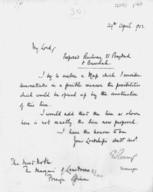 29th April 1902
My Lord,
Proposed Railway to Baghdad
& Basrah.
I beg to enclose a Map which I consider
demonstrates in a feasible manner the possibilities
which would be opened up by the construction
of this line.
I would add that the line as shown
here is not exactly the line now proposed.
I have the honour to be
Your Lordship's obedt servt
Manager
The Most Noble
The Marquis of Lansdowne
Foreign Office